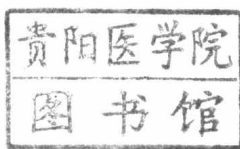 贵阳医学院
图书馆